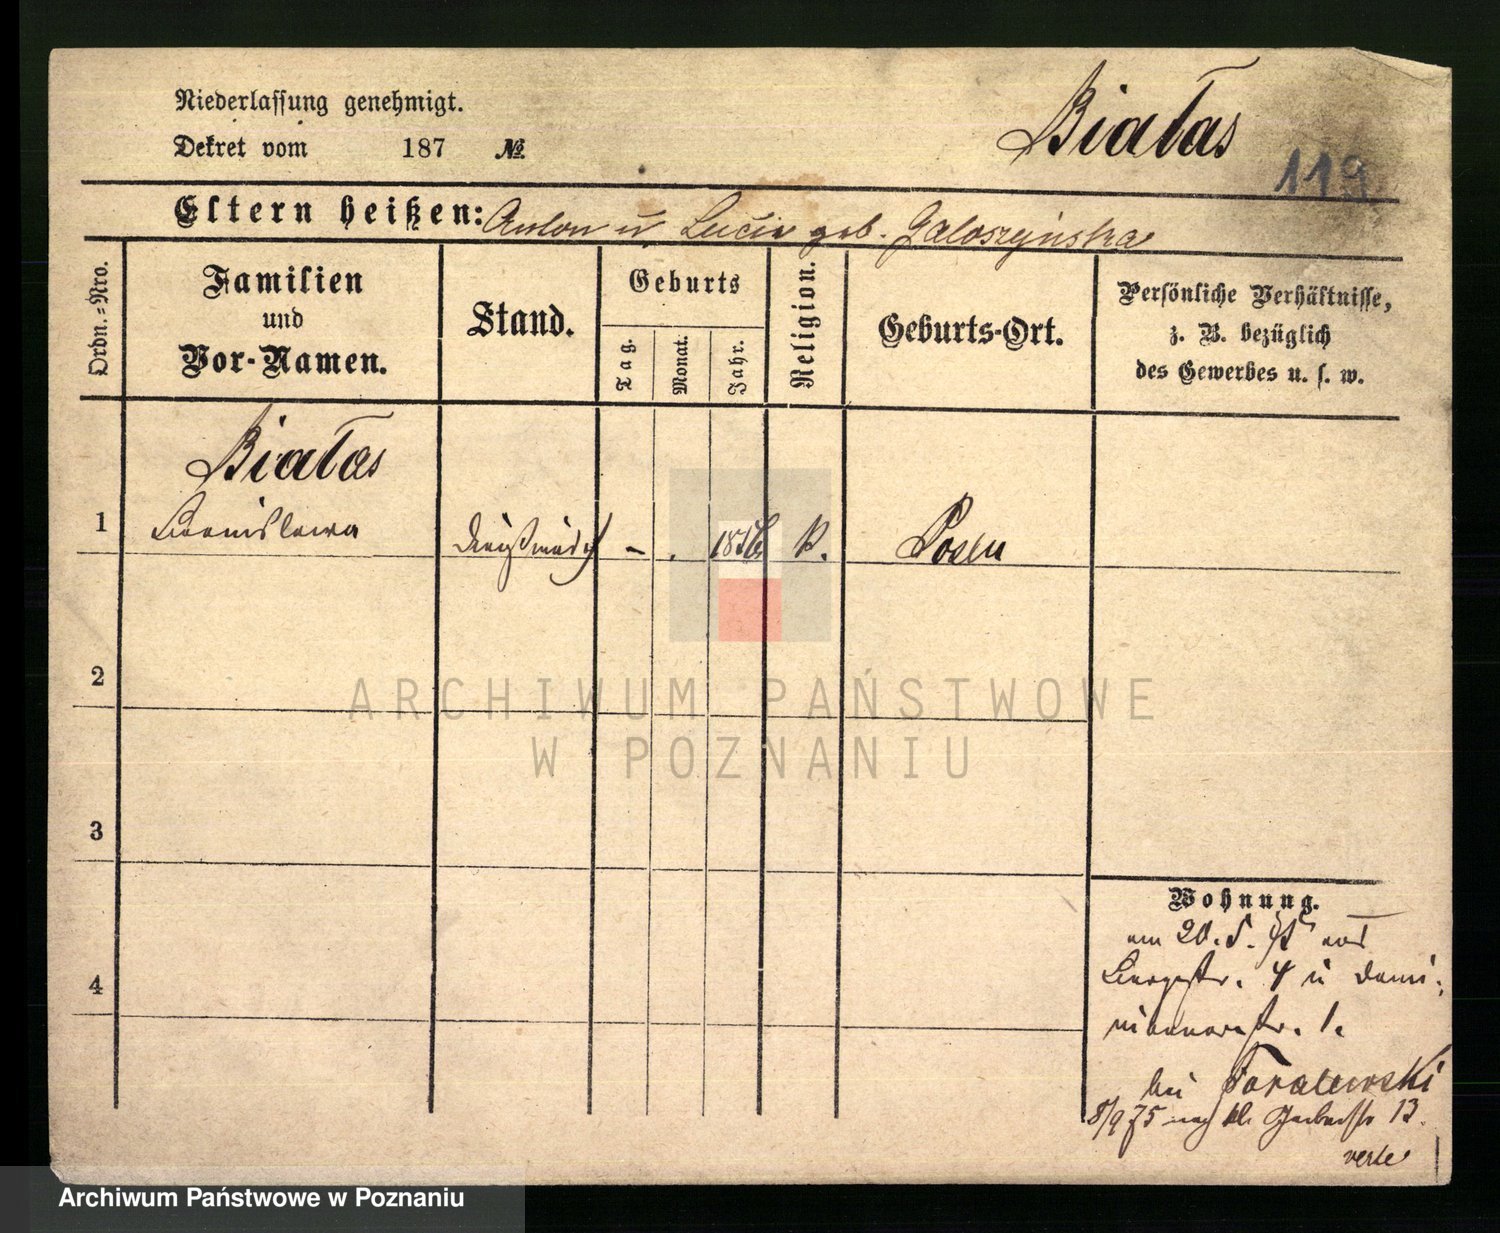 Niederlassung genehmigt.
Dekret vom 187 №
Białas
119
Eltern heißen: Anton u Lucie geb. Galoszynska
Ordn.=Nro.
Familien
und
Vor-Namen.
Stand.
Geburts
Tag.
Monat.
Jahr.
Religion.
Geburts-Ort.
Persönliche Verhältnisse,
z. B. bezüglich
des Gewerbes u. s. w.
Białas
1 Stanislawa Dienstmädch - . K. Posen
2
3
4
Wohnung.
am 20. 5. 75 aus
Bergstr. 4 n Domi-
nikanerstr. 1.
bei
8/9 75 nach kl. Gerberstr 13.
verte
ARCHIWUM PAŃSTWOWE
W POZNANIU
Archiwum Państwowe w Poznaniu